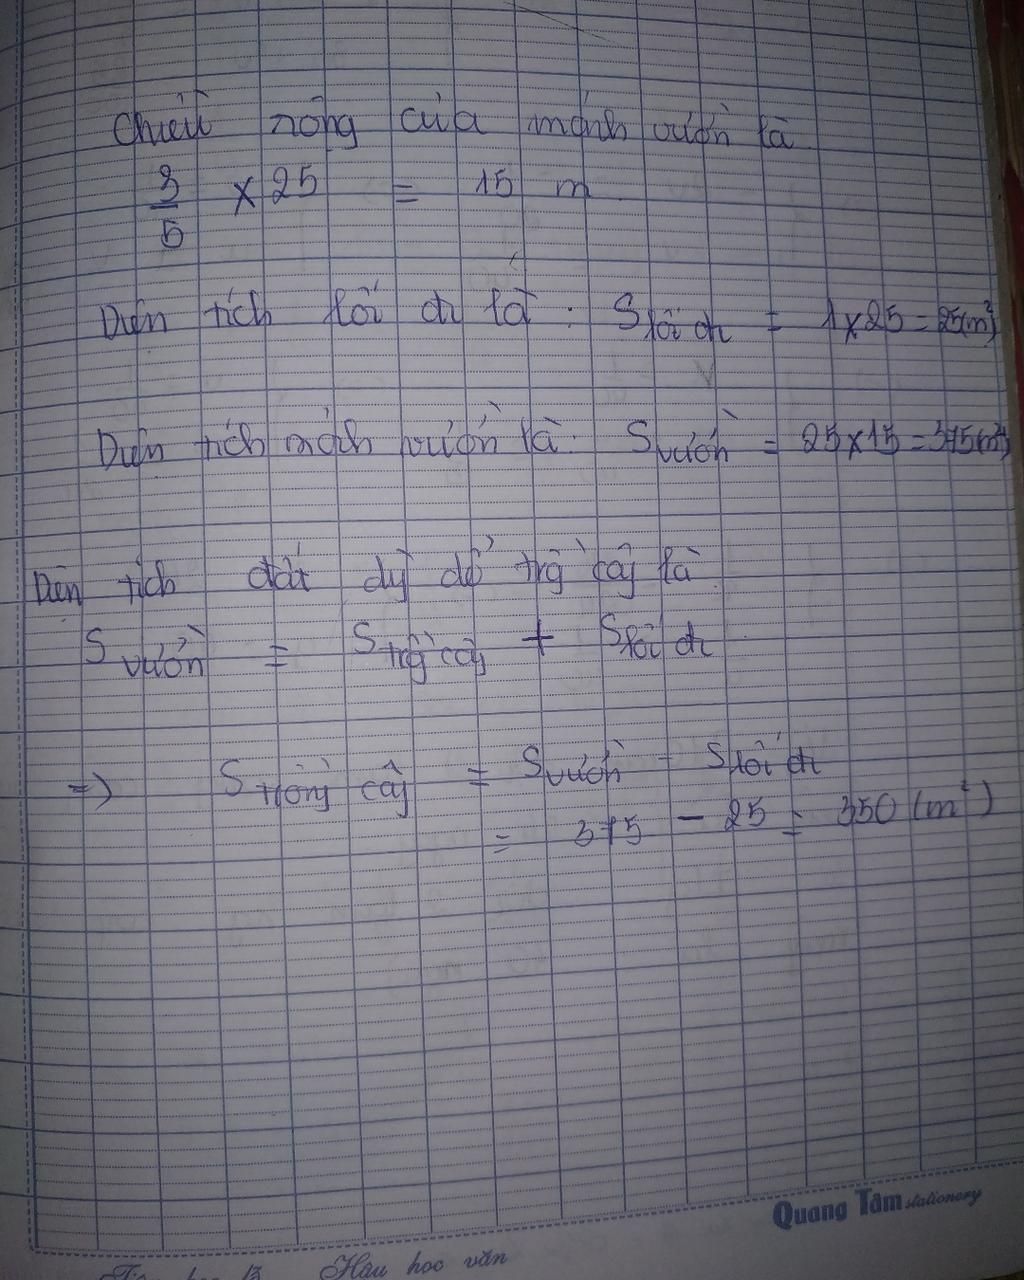 Chiều rộng của mảnh vườn là
3/5 × 25 = 15 m
Diện tích lối đi là : S lối đi = 1 × 25 = 25(m²)
Diện tích mảnh vườn là: S vườn = 25 × 15 = 375(m²)
Diện tích đất dùng để trồng cây là
S vườn = S trồng cây + S lối đi
=> S trồng cây = S vườn - S lối đi
= 375 - 25 = 350 (m²)
Quang Tâm stationery
Hậu học văn